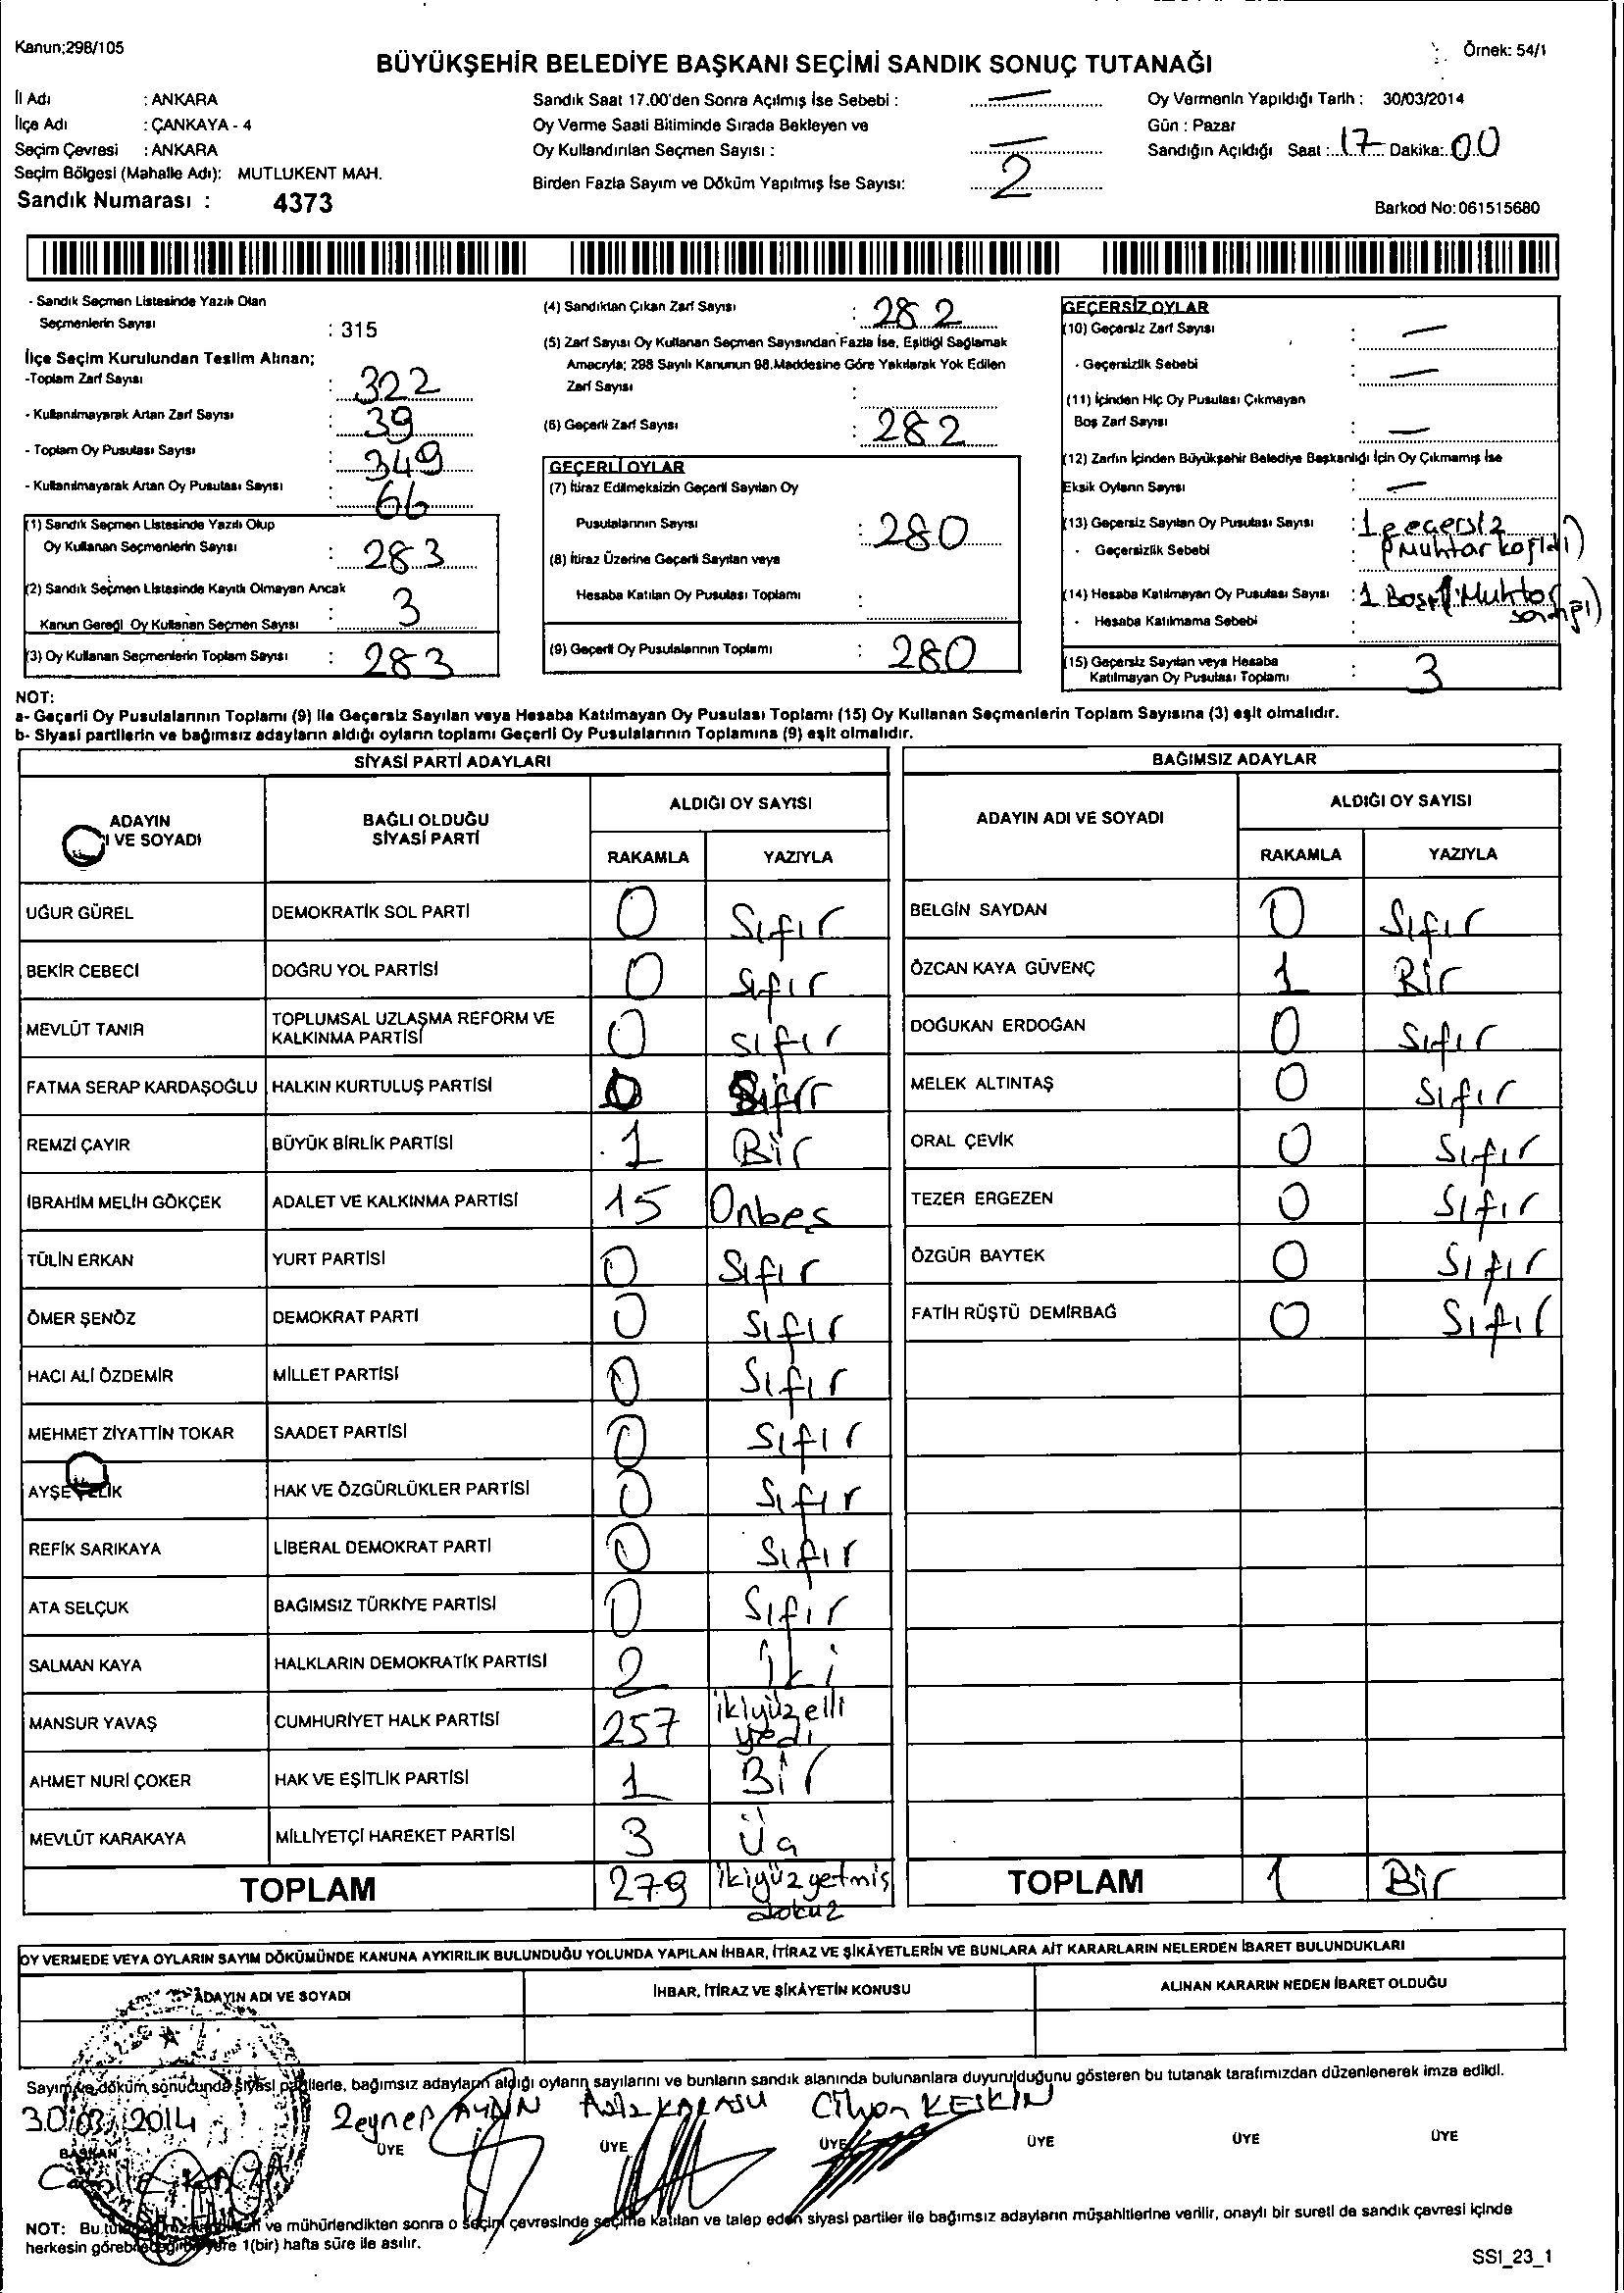 Kanun;298/105
Örnek: 54/1
BÜYÜKŞEHİR BELEDİYE BAŞKANI SEÇİMİ SANDIK SONUÇ TUTANAĞI
İl Adı : ANKARA
İlçe Adı : ÇANKAYA - 4
Seçim Çevresi : ANKARA
Seçim Bölgesi (Mahalle Adı): MUTLUKENT MAH.
Sandık Numarası : 4373
Sandık Saat 17.00'den Sonra Açılmış İse Sebebi : —
Oy Verme Saati Bitiminde Sırada Bekleyen ve
Oy Kullandırılan Seçmen Sayısı : —
Birden Fazla Sayım ve Döküm Yapılmış İse Sayısı: 2
Oy Vermenin Yapıldığı Tarih : 30/03/2014
Gün : Pazar
Sandığın Açıldığı Saat : 17 Dakika: 00
Barkod No:061515680
- Sandık Seçmen Listesinde Yazılı Olan
Seçmenlerin Sayısı : 315
İlçe Seçim Kurulundan Teslim Alınan;
-Toplam Zarf Sayısı : 322
- Kullanılmayarak Artan Zarf Sayısı : 39
- Toplam Oy Pusulası Sayısı : 349
- Kullanılmayarak Artan Oy Pusulası Sayısı : 66
(1) Sandık Seçmen Listesinde Yazılı Olup
Oy Kullanan Seçmenlerin Sayısı : 283
(2) Sandık Seçmen Listesinde Kayıtlı Olmayan Ancak
Kanun Gereği Oy Kullanan Seçmen Sayısı : 3
(3) Oy Kullanan Seçmenlerin Toplam Sayısı : 283
(4) Sandıktan Çıkan Zarf Sayısı : 282
(5) Zarf Sayısı Oy Kullanan Seçmen Sayısından Fazla İse, Eşitliği Sağlamak
Amacıyla; 298 Sayılı Kanunun 98.Maddesine Göre Yakılarak Yok Edilen
Zarf Sayısı :
(6) Geçerli Zarf Sayısı : 282
GEÇERLİ OYLAR
(7) İtiraz Edilmeksizin Geçerli Sayılan Oy
Pusulalarının Sayısı : 280
(8) İtiraz Üzerine Geçerli Sayılan veya
Hesaba Katılan Oy Pusulası Toplamı :
(9) Geçerli Oy Pusulalarının Toplamı : 280
GEÇERSİZ OYLAR
(10) Geçersiz Zarf Sayısı : —
- Geçersizlik Sebebi : —
(11) İçinden Hiç Oy Pusulası Çıkmayan
Boş Zarf Sayısı : —
(12) Zarfın İçinden Büyükşehir Belediye Başkanlığı İçin Oy Çıkmamış İse
Eksik Oyların Sayısı : —
(13) Geçersiz Sayılan Oy Pusulası Sayısı : 1 geçersiz
- Geçersizlik Sebebi (Muhtar
(14) Hesaba Katılmayan Oy Pusulası Sayısı : 1 Boş (Muhtar
- Hesaba Katılmama Sebebi :
(15) Geçersiz Sayılan veya Hesaba
Katılmayan Oy Pusulası Toplamı : 3
NOT:
a- Geçerli Oy Pusulalarının Toplamı (9) ile Geçersiz Sayılan veya Hesaba Katılmayan Oy Pusulası Toplamı (15) Oy Kullanan Seçmenlerin Toplam Sayısına (3) eşit olmalıdır.
b- Siyasi partilerin ve bağımsız adayların aldığı oyların toplamı Geçerli Oy Pusulalarının Toplamına (9) eşit olmalıdır.
SİYASİ PARTİ ADAYLARI
ADAYIN
I VE SOYADI
BAĞLI OLDUĞU
SİYASİ PARTİ
ALDIĞI OY SAYISI
RAKAMLA YAZIYLA
UĞUR GÜREL DEMOKRATİK SOL PARTİ 0 Sıfır
BEKİR CEBECİ DOĞRU YOL PARTİSİ 0 Sıfır
MEVLÜT TANIR TOPLUMSAL UZLAŞMA REFORM VE
KALKINMA PARTİSİ 0 Sıfır
FATMA SERAP KARDAŞOĞLU HALKIN KURTULUŞ PARTİSİ 0 Sıfır
REMZİ ÇAYIR BÜYÜK BİRLİK PARTİSİ 1 Bir
İBRAHİM MELİH GÖKÇEK ADALET VE KALKINMA PARTİSİ 15 Onbeş
TÜLİN ERKAN YURT PARTİSİ 0 Sıfır
ÖMER ŞENÖZ DEMOKRAT PARTİ 0 Sıfır
HACI ALİ ÖZDEMİR MİLLET PARTİSİ 0 Sıfır
MEHMET ZİYATTİN TOKAR SAADET PARTİSİ 0 Sıfır
AYŞE HAK VE ÖZGÜRLÜKLER PARTİSİ 0 Sıfır
REFİK SARIKAYA LİBERAL DEMOKRAT PARTİ 0 Sıfır
ATA SELÇUK BAĞIMSIZ TÜRKİYE PARTİSİ 0 Sıfır
SALMAN KAYA HALKLARIN DEMOKRATİK PARTİSİ 2 İki
MANSUR YAVAŞ CUMHURİYET HALK PARTİSİ 257 ikiyüzelli
yedi
AHMET NURİ ÇOKER HAK VE EŞİTLİK PARTİSİ 1 Bir
MEVLÜT KARAKAYA MİLLİYETÇİ HAREKET PARTİSİ 3 Üç
TOPLAM 279 ikiyüzyetmiş
dokuz
BAĞIMSIZ ADAYLAR
ADAYIN ADI VE SOYADI
ALDIĞI OY SAYISI
RAKAMLA YAZIYLA
BELGİN SAYDAN 0 Sıfır
ÖZCAN KAYA GÜVENÇ 1 Bir
DOĞUKAN ERDOĞAN 0 Sıfır
MELEK ALTINTAŞ 0 Sıfır
ORAL ÇEVİK 0 Sıfır
TEZER ERGEZEN 0 Sıfır
ÖZGÜR BAYTEK 0 Sıfır
FATİH RÜŞTÜ DEMİRBAĞ 0 Sıfır
TOPLAM 1 Bir
OY VERMEDE VEYA OYLARIN SAYIM DÖKÜMÜNDE KANUNA AYKIRILIK BULUNDUĞU YOLUNDA YAPILAN İHBAR, İTİRAZ VE ŞİKÂYETLERİN VE BUNLARA AİT KARARLARIN NELERDEN İBARET BULUNDUKLARI
ADAYIN ADI VE SOYADI
İHBAR, İTİRAZ VE ŞİKÂYETİN KONUSU
ALINAN KARARIN NEDEN İBARET OLDUĞU
Sayım ve döküm sonucunda siyasi partilerle, bağımsız adayların aldığı oyların sayılarını ve bunların sandık alanında bulunanlara duyurulduğunu gösteren bu tutanak tarafımızdan düzenlenerek imza edildi.
30/03/2014 Zeynep AYDIN KARASU Cihan KESKİN
BAŞKAN ÜYE ÜYE ÜYE ÜYE ÜYE ÜYE
NOT: Bu ve mühürlendikten sonra o seçim çevresinde seçime katılan ve talep eden siyasi partiler ile bağımsız adayların müşahitlerine verilir, onaylı bir sureti de sandık çevresi içinde
herkesin yere 1(bir) hafta süre ile asılır.
SSI_23_1